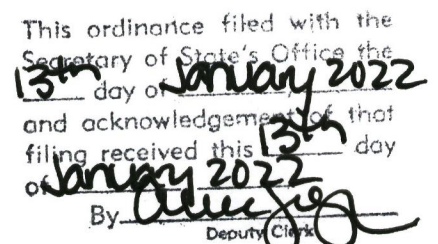 This ordinance filed with the
Secretary of State's Office the
13th day of January 2022
and acknowledgement of that
filing received this 13th day
of January 2022
By
Deputy Clerk